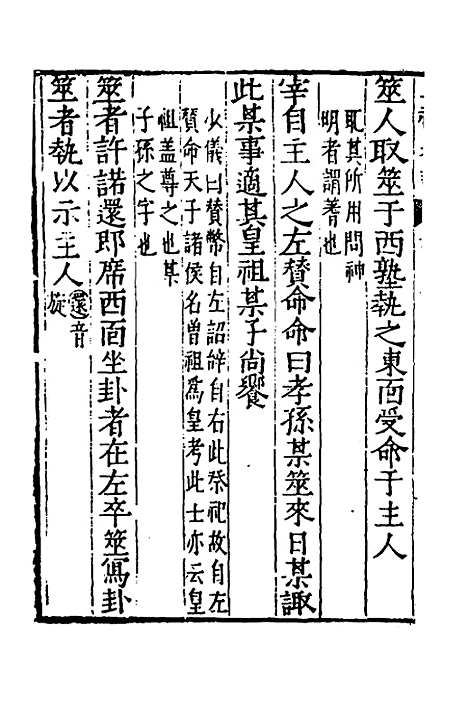 筮人取筮于西塾執之東面受命于主人
取其所用問神
明者謂蓍也
宰自主人之左贊命命曰孝孫某筮來日某諏
此某事適其皇祖某子尚饗
少儀曰贊幣自左詔辭自右此祭祀故自左
贊命天子諸侯名曾祖爲皇考此士亦云皇
祖蓋尊之也某
子孫之字也
筮者許諾還即席西面坐卦者在左卒筮寫卦
筮者執以示主人
還音
旋